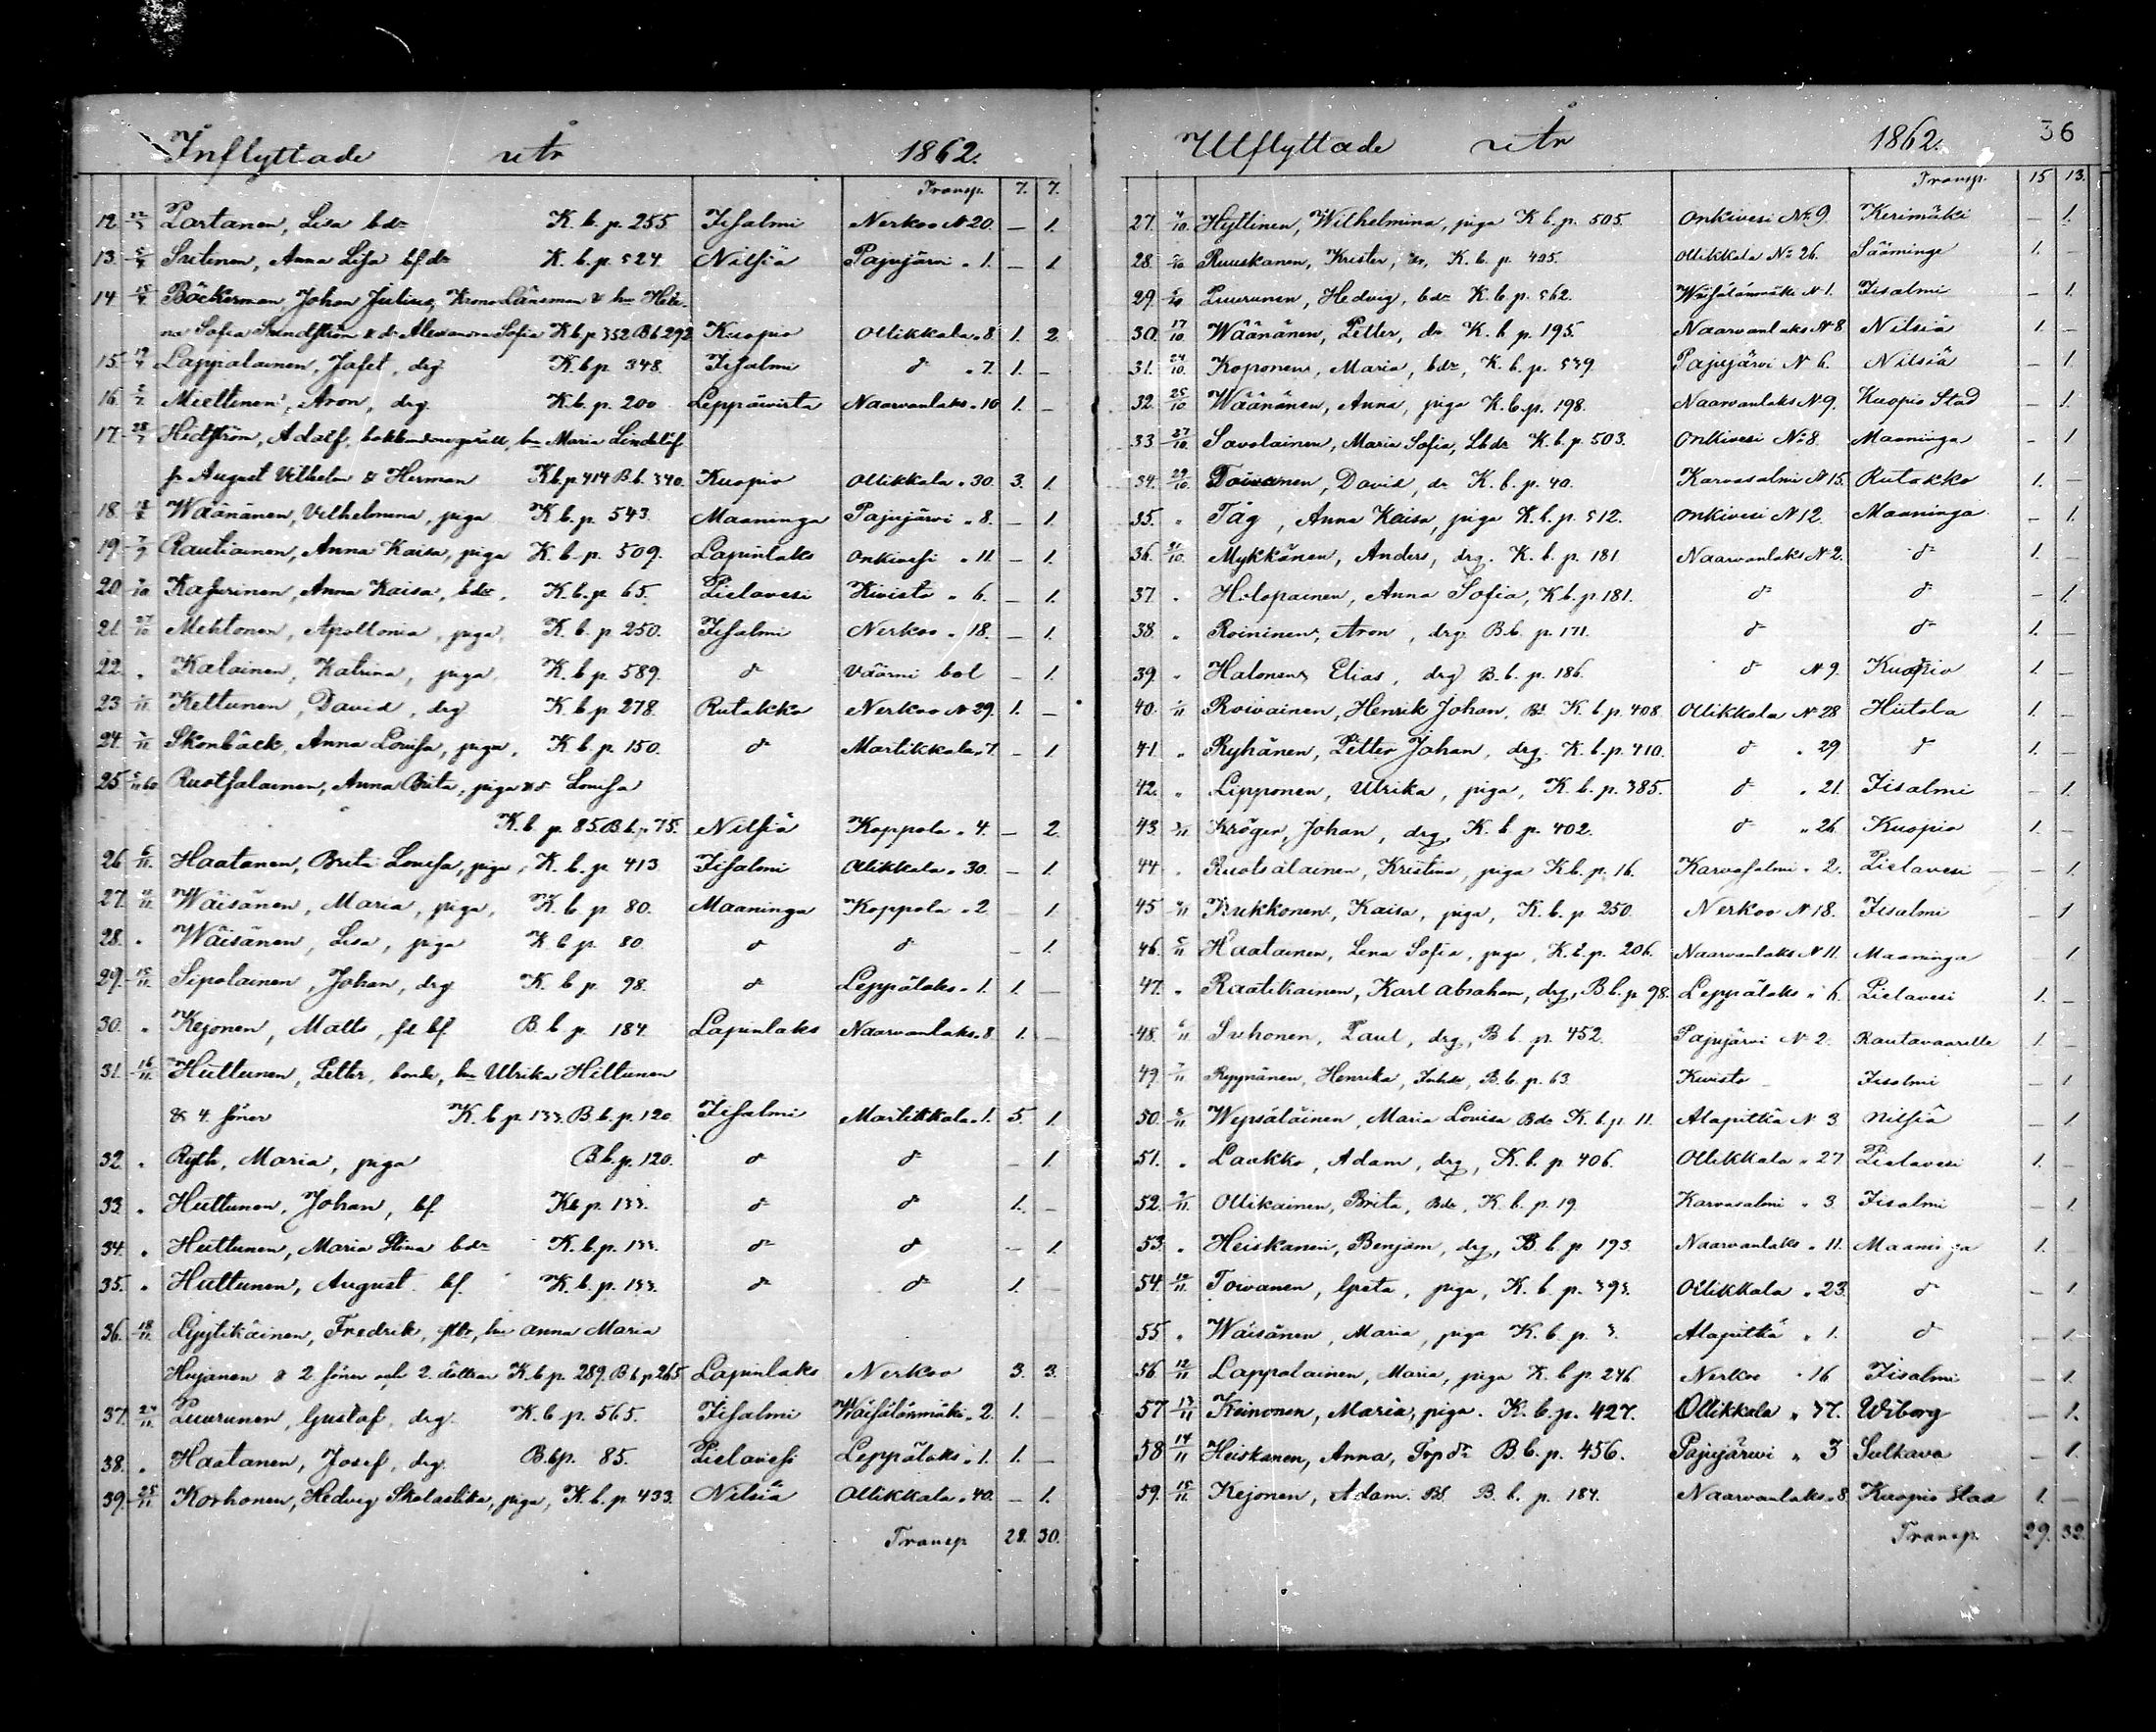 Inflyttade År 1862.
Transp. 7. 7.
12. Partanen, Lisa bdr K. b. p. 255. Jisalmi Nerkoo N 20. — 1.
13. Saitinen, Anna Lisa bfdr K. b. p. 524. Nilsiä Pajujärvi „ 1. — 1.
14 Böckerman Johan Julius, Krono Länsman & hu Hele-
na Sofia Sundström & dr Alexandra Sofia K b p 352 B b 292 Kuopio Ollikkala „ 8. 1. 2.
15. Lappalainen, Jafet, drg K b p 348. Jisalmi d° „ 7. 1. —
16. Miettinen, Aron, drg. K. b. p. 200 Leppävirta Naarvanlaks „ 10 1. —
17. Hedström, Adolf, bokbindaregesäll, hu Maria Lindelöf
sr August Vilhelm & Herman K b p 414 B. b. 340. Kuopio Ollikkala „ 30. 3. 1.
18. Wäänänen, Vilhelmina, piga K. b. p. 543. Maaninga Pajujärvi „ 8. — 1.
19. Rautiainen, Anna Kaisa, piga K. b. p. 509. Lapinlaks Onkivesi „ 11. — 1.
20. Kasurinen, Anna Kaisa, bdr, K. b. p. 65. Pielavesi Kivistö „ 6. — 1.
21. 27/10 Mehtonen, Apollonia, piga, K. b. p. 250. Jisalmi Nerkoo „ 18. — 1.
22. „ Kalainen, Katrina, piga, K. b p. 589. d° Väärni bol — 1.
23. Kettunen, David, drg K. b p 278. Rutakko Nerkoo N 29. 1. —
24. Skönbäck, Anna Lovisa, piga, K. b p. 150. d° Martikkala „ 7. — 1.
25. Ruotsalainen, Anna Brita, piga & dr Lovisa
K. b. p. 85. B. b. p 75. Nilsiä Koppola „ 4. — 2.
26 6/11 Haatanen, Brita Lovisa, piga, K. b. p 413. Jisalmi Ollikkala „ 30. — 1.
27. Wäisänen, Maria, piga, K. b. p 80. Maaninga Koppola „ 2 — 1.
28. „ Wäisänen, Lisa, piga K. b p. 80. d° d° — 1.
29. 15/11 Sipolainen, Johan, drg K. b p. 98. d° Leppälaks „ 1. 1. —
30. „ Kejonen, Matts, fd bf. B. b. p. 184. Lapinlaks Naarvanlaks „ 8 1. —
31. 16/11 Huttunen, Petter, bonde, hu Ulrika Hiltunen
& 4. söner K. b. p. 133. B. b. p. 120. Jisalmi Martikkala „ 1. 5. 1.
32. „ Ryth, Maria, piga B. b. p. 120. d° d° — 1.
33. „ Huttunen, Johan, bf. Kb p. 133. d° d° 1. —
34. „ Huttunen, Maria Stina bdr K. b. p. 133. d° d° — 1.
35. „ Huttunen, August bf. K. b. p. 133. d° d° 1. —
36. 18/11 Lyytikäinen, Fredrik, hu Anna Maria
Hujanen & 2 söner och 2. döttrar K. b p. 289. B. b p 265 Lapinlaks Nerkoo 3. 3.
37. Puurunen, Gustaf, drg. K. b p. 565. Jisalmi Wäisälänmäki „ 2. 1. —
38. „ Haatanen, Josef, drg. B. b p. 85. Pielavesi Leppälaks „ 1. 1. —
39. 25/11 Korhonen, Hedvig Skolastika, piga, K. b. p. 433. Nilsiä Ollikkala „ 40. — 1.
Transp. 28. 30.
Utflyttade År 1862. 36
Transp. 15 13.
27. Hyttinen, Wilhelmina, piga K. b. p. 505. Onkivesi No 9. Kerimäki — 1.
28. Ruuskanen, Krister, dr, K. b. p. 405. Ollikkala No 26. Sääminge 1. —
29. Puurunen, Hedvig, bdr K. b. p. 562. Wäisälänmäki N 1. Jisalmi — 1.
30. 17/10 Wäänänen, Petter, dr K. b. p. 195. Naarvanlaks N 8 Nilsiä 1. —
31. 24/10 Koponen, Maria, bdr, K. b. p. 539. Pajujärvi N 6. Nilsiä — 1.
32. 25/10 Wäänänen, Anna, piga K. b. p. 198. Naarvanlaks N 9. Kuopio Stad — 1.
33 27/10 Savolainen, Maria Sofia, Lbdr K. b. p. 503. Onkivesi No 8. Maaninga — 1
34. 29/10 Toivanen, David, dr K. b. p. 40. Karvasalmi N 15. Rutakko 1. —
35. „ Täg, Anna Kaisa, piga K. b. p. 512. Onkivesi N 12. Maaninga — 1.
36. 31/10 Mykkänen, Anders, drg. K. b. p. 181. Naarvanlaks N 2. d° 1. —
37. „ Holopainen, Anna Sofia, K b. p. 181. d° d° — 1.
38. „ Roininen, Aron, drg B. b. p. 171. d° d° 1. —
39 „ Halonen, Elias, drg B. b. p. 186. d° N 9. Kuopio 1. —
40. Roivainen, Henrik Johan, Bf. K. b. p. 408 Ollikkala N 28 Hiitola 1. —
41. „ Ryhänen, Petter Johan, drg. K. b. p. 410. d° „ 29. d° 1. —
42. „ Lipponen, Ulrika, piga, K. b. p. 385. d° „ 21. Jisalmi — 1.
43. Kröger, Johan, drg, K. b. p. 402. d° „ 26 Kuopio 1. —
44 „ Ruotsalainen, Kristina, piga K b. p. 16. Karvasalmi „ 2. Pielavesi — 1.
45 Kukkonen, Kaisa, piga, K. b. p 250. Nerkoo N 18. Jisalmi — 1
46. 5/11 Haatainen, Lena Sofia, piga, K. b. p. 206. Naarvanlaks N 11. Maaninga 1
47. „ Raatikainen, Karl Abraham, drg, B b. p 98. Leppälaks „ 6. Pielavesi 1. —
48. 6/11 Suhonen, Paul, drg, B b. p. 452. Pajujärvi N 2. Rautavaaralle 1. —
49. 7/11 Ryynänen, Henrika, B. b. p. 63. Kivistö Jisalmi — 1
50. 8/11 Wepsäläinen, Maria Lovisa Bdr K. b. p. 11. Alapitkä N 3 Nilsiä — 1
51. „ Laakko, Adam, drg, K. b. p 406. Ollikkala „ 27 Pielavesi 1. —
52. 9/11 Ollikainen, Brita, Bdr, K. b. p. 19. Karvasalmi „ 3. Jisalmi — 1.
53. „ Heiskanen, Benjam, drg, B. b. p 193. Naarvanlaks „ 11. Maaninga 1. —
54 Toivanen, Greta, piga, K. b. p. 393. Ollikkala „ 23. d° — 1
55 „ Wäisänen, Maria, piga K. b. p. 3. Alapitkä „ 1. d° — 1.
56. 12/11 Lappalainen, Maria, piga K. b. p. 246. Nerkoo „ 16 Jisalmi — 1.
57 13/11 Kainonen, Maria, piga. K. b. p. 427. Ollikkala „ 37. Wiborg — 1.
58 14/11 Heiskanen, Anna, Trp dr B b. p. 456. Pajujärwi „ 3 Sulkava — 1.
59. 15/11 Kejonen, Adam. Bf. B. b. p. 184. Naarvanlaks „ 8 Kuopio stad 1. —
Transp. 29. 32.